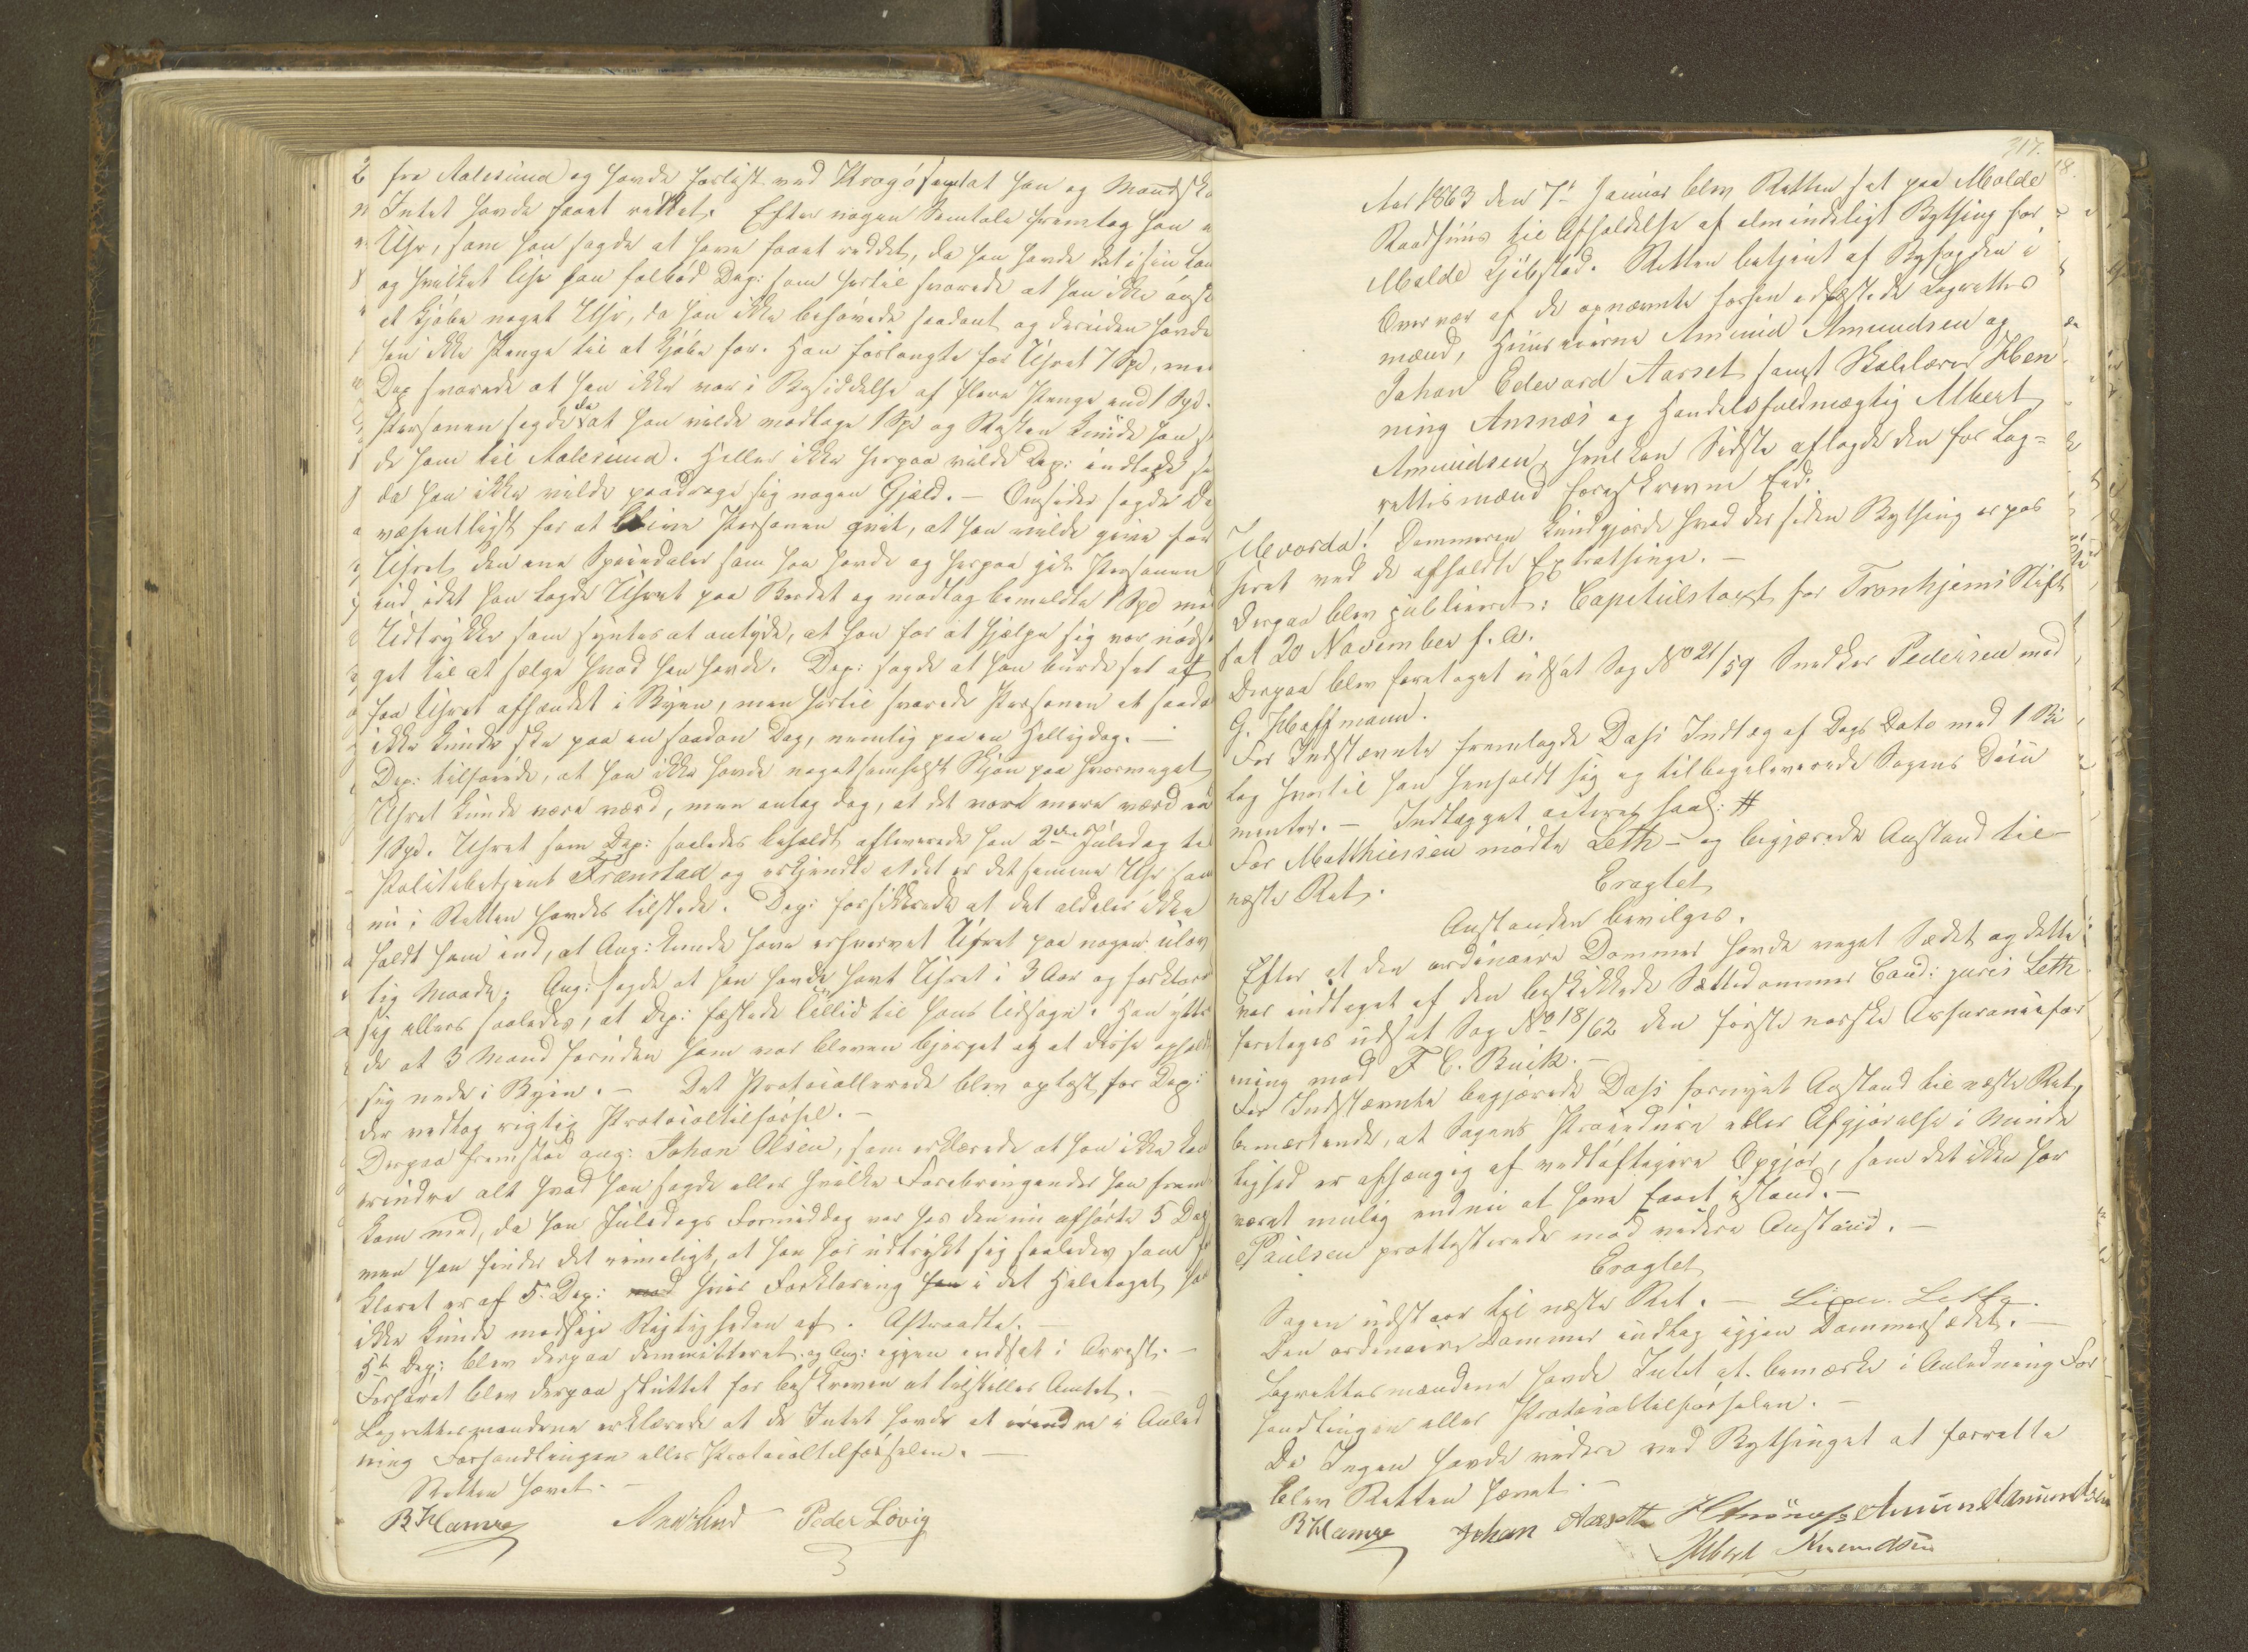 fra Aalesund og havde forlist ved Kragø samt at han og Mandska
Intet havde faaet reddet. Efter nogen Samtale fremtog han e
Uhr, som han sagde at have faaet reddet, da han havde det i sin Lom
og hvilket Uhr han falbød Dep: som hertil svarede at han ikke ønsk
at kjøbe noget Uhr, da han ikke behøvede saadant og desuden havde
han ikke Penge til at kjøbe for. Han forlangte for Uhret 7 Spd, men
Dep svarede at han ikke var i Besiddelse af flere Penge end 1 Spd.
Personen sagde da at han vilde modtage 1 Spd og Resten kunde han s
de ham til Aalesund. Heller ikke herpaa vilde Dep: indlade
da han ikke vilde paadrage sig nogen Gjæld. — Omsider sagde De
væsentligst for at blive Personen qvit, at han vilde give for
Uhret den ene Speciedaler som han havde og herpaa gik Personen
ind, idet han lagde Uhret paa Bordet og modtog bemeldte 1 Spd med
Udtrykker som syntes at antyde, at han for at hjælpe sig var nøds
get til at sælge hvad han havde. Dep: sagde at han burde see at
faa Uhret afhændet i Byen, men hertil svarede Personen at saada
ikke kunde ske paa en saadan Dag, nemlig paa en Helligdag. —
Dep: tilføiede, at han ikke havde nogetsomhelst Skjøn paa hvormeget
Uhret kunde være værd, men antog dog, at det var mere værd end
1 Spd. Uhret som Dep: saaledes beholdt afleverede han 2den Juledag til
Politibetjent Frænstad og erkjendte at det er det samme Uhr som
nu i Retten havdes tilstede. Dep: forsikkrede at det aldeles ikke
faldt ham ind, at Ang: kunde have erhvervet Uhret paa nogen ulov
lig Maade. Ang: sagde at han havde havt Uhret i 3 Aar og forklared
sig ellers saaledes, at Dep: fæstede Lid til hans Udsagn. Han yttre
de at 3 Mand foruden ham var bleven bjerget og at disse opholdt
sig nede i Byen. — Det Protocollerede blev oplæst for Dep:
der vedtog rigtig Protocoltilførsel. —
Derpaa fremstod ang: Johan Olsen, som erklærede at han ikke kan
erindre alt hvad han sagde eller hvilke Forebringender han frem
kom med, da han Juledags Formiddag var hos den nu afhørte 5 Dep
men han finder det rimeligt, at han har udtrykt sig saaledes som for
klaret er af 5. Dep: mod hvis Forklaring han i det Heletaget hel
ikke kunde modsige Rigtigheden af. Aftraadte. —
5te Dep: blev derpaa demmitteret og Ang: igjen indsat i Arrest. —
Forhøret blev derpaa sluttet for beskreven at tilstilles Amtet. —
Lagrettesmændene erklærede at de Intet havde at erindre i Anled
ning Forhandlingen eller Protocoltilførselen. —
Retten hævet. —
B Hamre Peder Lövig
317.
Aar 1863 den 7de Januar blev Retten sat paa Molde
Raadhuus til Afholdelse af almindeligt Bything for
Molde Kjøbstad. Retten betjent af Byfogden i
Overvær af de opnævnte forhen edfæstede Lagrettes
mænd, Huuseierne Amund Amundsen og
Johan Edevard Aarset samt Skolelærer Hen
ning Amnæs og Handelsfuldmægtig Albert
Amundsen, hvilken Sidste aflagde den for Lag=
rettesmænd foreskrevne Eed.
Hvorda! Dommeren kundgjorde hvad der siden Bything er pas
seret ved de afholdte Extrathinge. —
Derpaa blev publiceret: Capitulstaxt for Tronhjems Stift
dat 20 November f. A.
Derpaa blev foretaget udsat Sag No 21/59 Snedker Pedersen mod
G. Hoffmann.
For Indstævnte fremlagde Dahs Indlæg af Dags Dato med 1 Bi
lag hvortil han henholdt sig og tilbageleverede Sagens Docu
menter. — Indlægget acteres saal: #
For Matthiesen mødte Leth — og begjærede Anstand til
næste Ret.
Eragtet
Anstanden bevilges.
Efter at den ordinaire Dommer havde veget Sædet og dette
var indtaget af den beskikkede Sættedommer Cand: juris Leth
foretages udsat Sag No 18/62 den første norske Assuranceefor
ening mod F C. Buck. —
For Indstævnte begjærede Dahs fornyet Anstand til næste Ret,
bemærkende, at Sagens Procedure eller Afgjørelse i Minde
lighed er afhængig af vedløftigere Opgjør, som det ikke har
været mulig endnu at have faaet istand. —
Paulsen prottesterede mod videre Anstand. —
Eragtet
Sagen udstaar til næste Ret. —
Den ordinaire Dommer indtog igjen Dommersædet. —
Lagrettesmændene havde Intet at bemærke i Anledning For
handlingen eller Protocoltilførselen. —
Da Ingen havde videre ved Bythinget at forrette
blev Retten hævet. —
B Hamre Johan Aarseth Amund Amundsen
Albert Amundsen